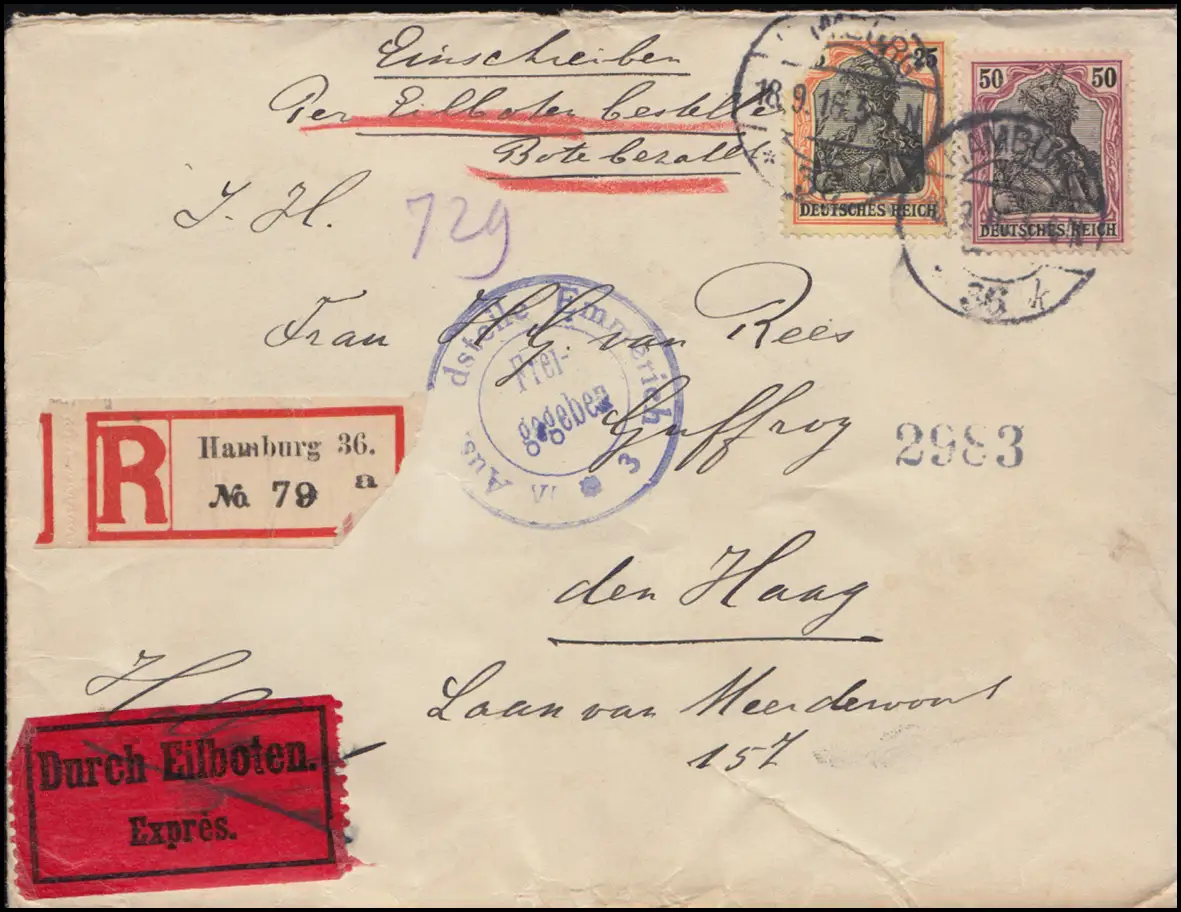 Einschreiben
Per Eilboten bestelle
Bote bezahlt
25
DEUTSCHES REICH
50 50
DEUTSCHES REICH
HAMBURG
18.9.16.
N
HAMBURG
36 k
I. H.
729
Frau H. J. van Rees
Guffroy
dstelle Emmerich
Frei-
gegeben
Aus
3
2983
R
Hamburg 36.
No 79 a
den Haag
Laan van Meerdervoort
157
Durch Eilboten.
Exprès.